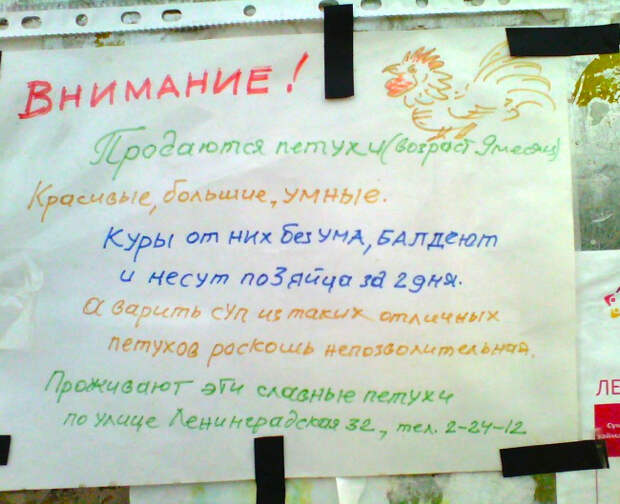 ВНИМАНИЕ!
Продаются петухи (возраст 9 месяц)
Красивые, большие, умные.
Куры от них без УМА, БАЛДЕЮТ
и несут по 3 яйца за 2 дня.
А варить суп из таких отличных
петухов роскошь непозволительная.
Проживают эти славные петухи
по улице Ленинградская 32, тел. 2-24-12
ЛЕ